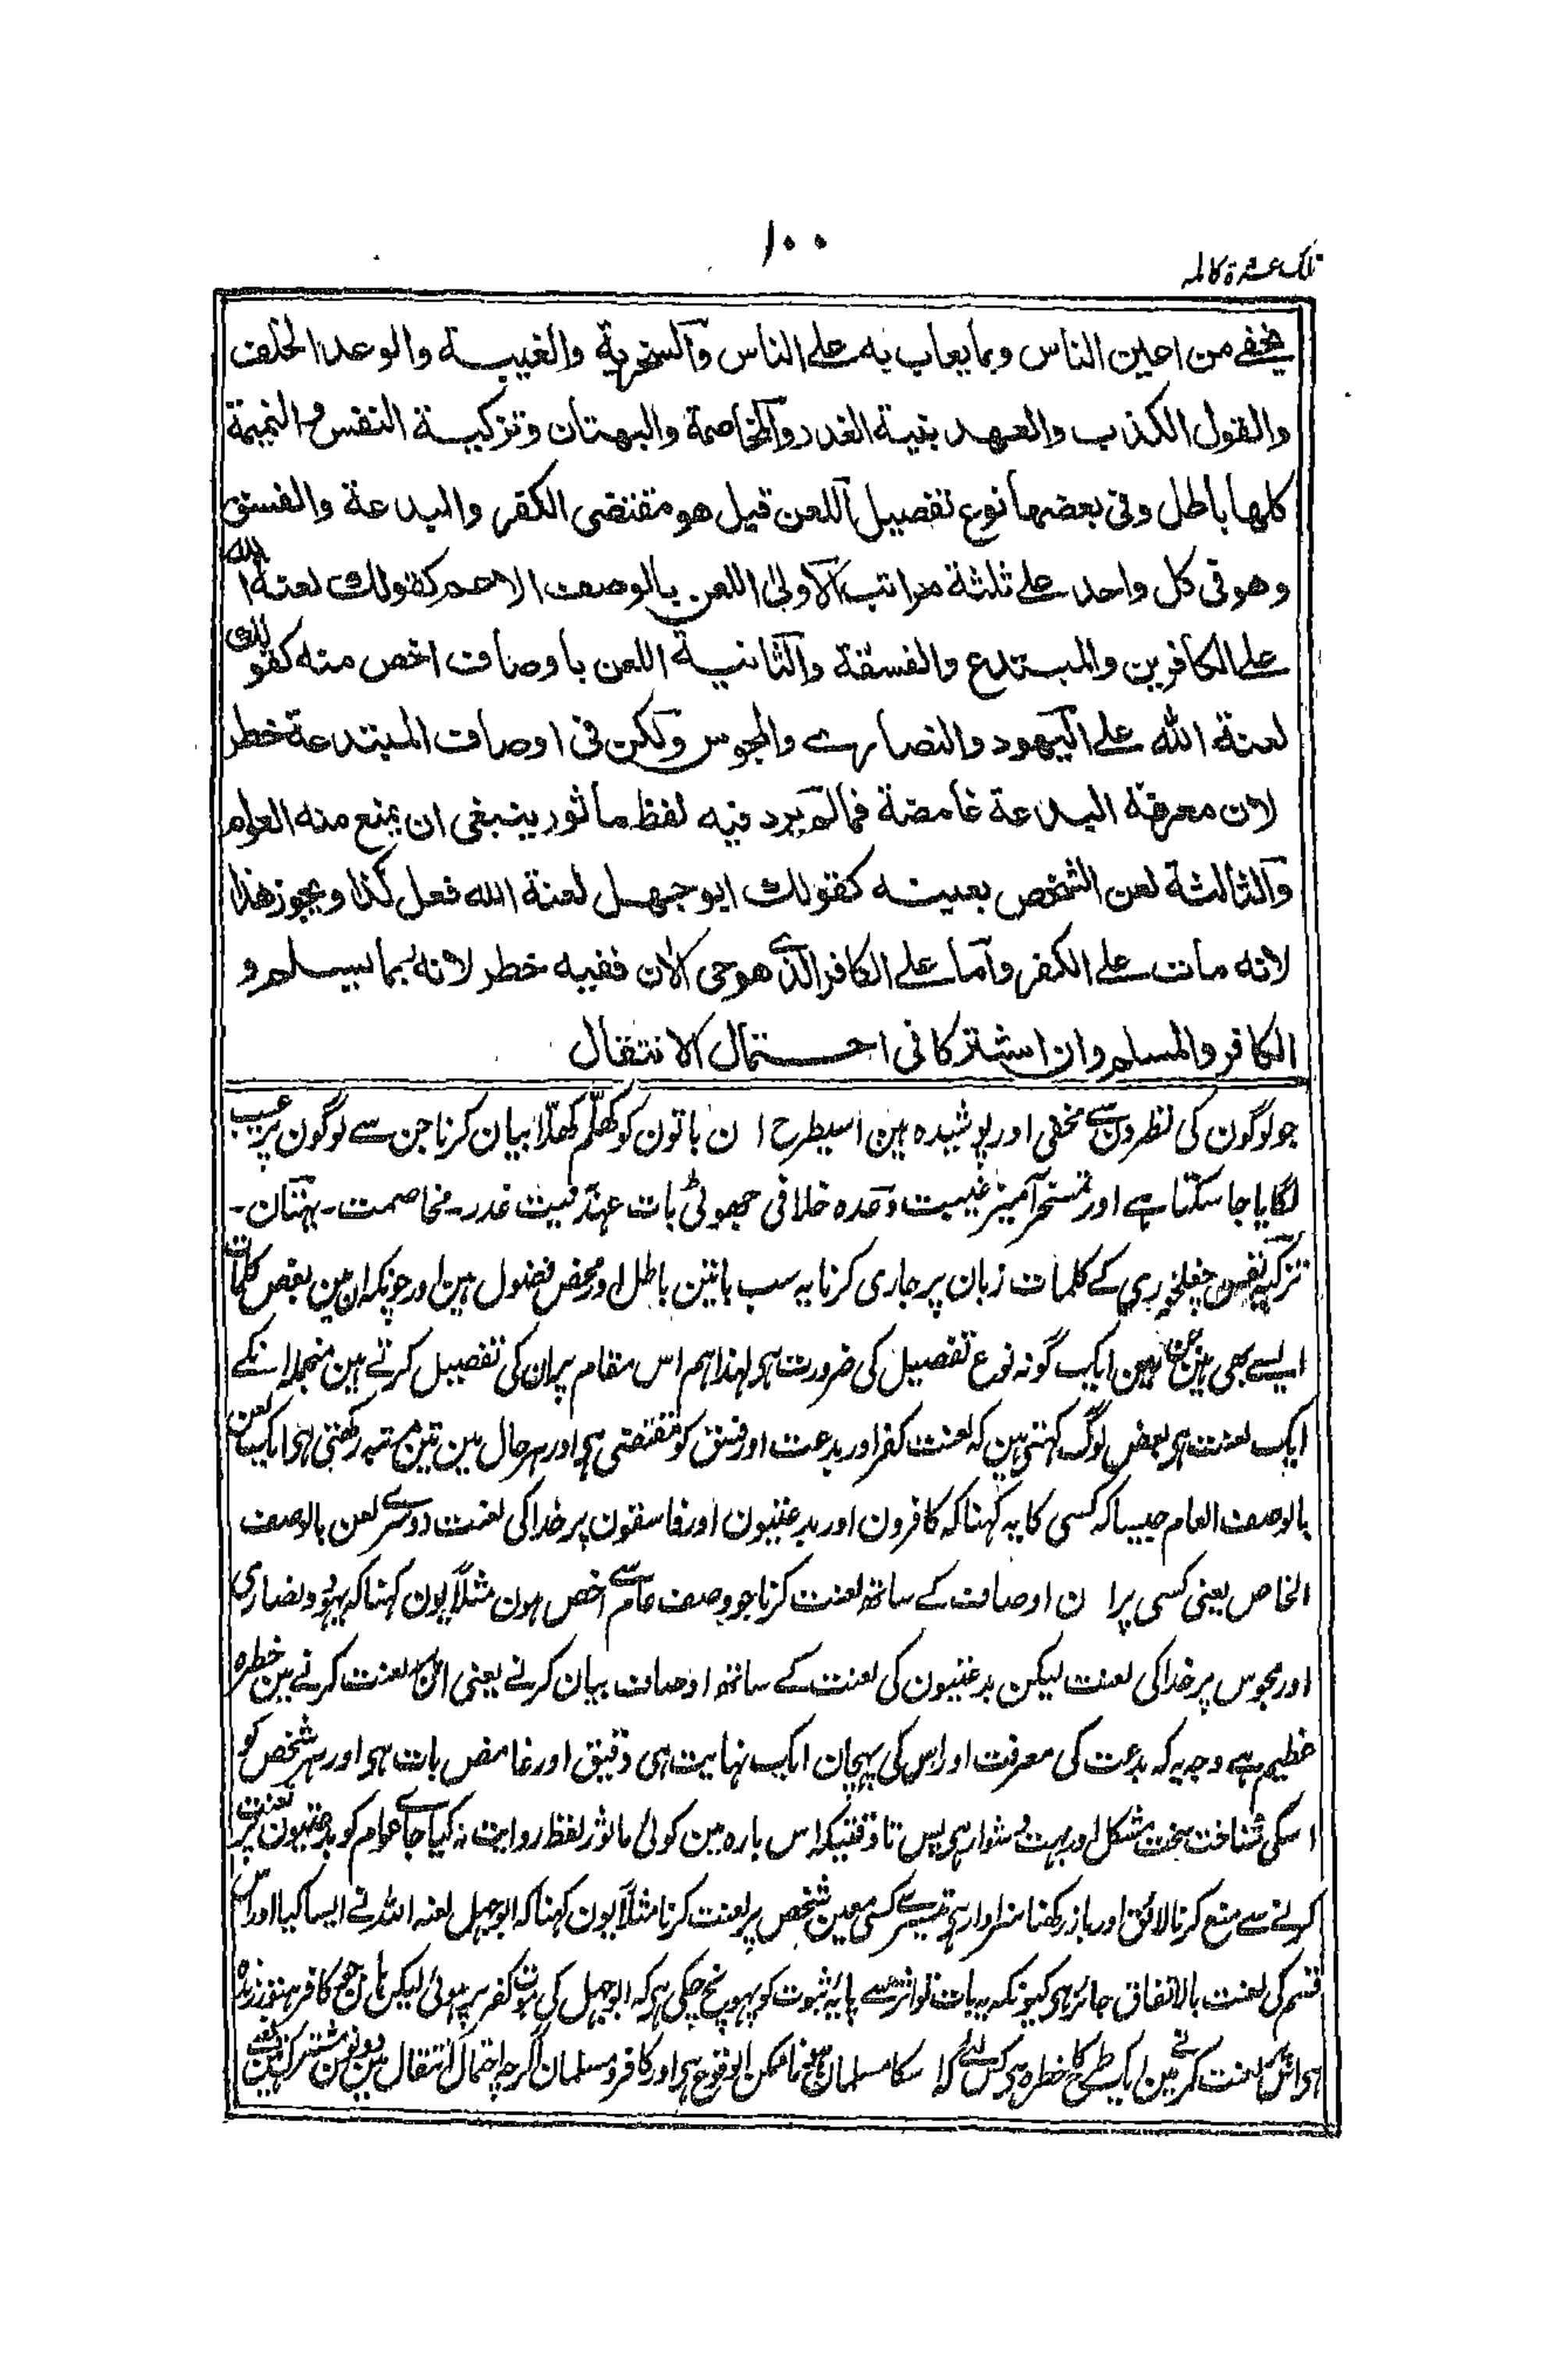 ۱۰۰
تلک عشرۃ کاملہ
یخفے من اعین الناس وبما یعاب به علے الناس والسخریة والغیبة والوعد الخلف
والقول الکذب والعهد بنیة الغدر والمخاصمة والبهتان وتزکیة النفس والنمیمة
کلها باطل وفی بعضها نوع تفصیل اللعن قیل هو مقتضی الکفر والبدعة والفسق
وهو فی کل واحد علے ثلثة مراتب الاولیٰ اللعن بالوصف الاعم کقولك لعنة الله
علے الکافرین والمبتدع والفسقة والثانیة اللعن باوصاف اخص منه کقولك
لعنة الله علے الیهود والنصارے والمجوس ولکن فی اوصاف المبتدعة خطر
لان معرفة البدعة غامضة فما لم یرد فیه لفظ ماثور ینبغی ان یمنع منه العوام
والثالثة لعن الشخص بعینه کقولك ابو جهل لعنة الله فعل کذا ویجوز هذا
لانه مات علے الکفر واما علے الکافر الذی هو حی الان ففیه خطر لانه ربما یسلم و
الکافر والمسلم وان اشترکا فی احتمال الانتقال
جو لوگون کی نظرون سے مخفی اور پوشیدہ ہین اسیطرح ان باتون کو کھلّم کھلّا بیان کرنا جن سے لوگون پر عیب
لگایا جا سکتا ہے اور تمسخر آمیز غیبت وعدہ خلافی جھوٹی بات عہد بنیت غدر۔ مخاصمت۔ بہتان۔
تزکیہ نفس چغلخوری کے کلمات زبان پر جاری کرنا یہ سب باتین باطل اور محض فضول ہین اور چونکہ ان مین بعض کلمات
ایسے بھی ہین جن مین ایک گونہ نوع تفصیل کی ضرورت ہی لہذا ہم اس مقام پر ان کی تفصیل کرتے ہین منجملہ انکے
ایک لعنت ہی بعض لوگ کہتی ہین کہ لعنت کفر اور بدعت اور فسق کو مقتضی ہی اور ہر حال مین تین مرتبہ رکھتی ہی ایک لعن
بالوصف العام جیسا کہ کسی کا یہ کہنا کہ کافرون اور بدعتیون اور فاسقون پر خدا کی لعنت دوسرے لعن بالوصف
الخاص یعنی کسی پر ان اوصاف کے ساتھ لعنت کرنا جو وصف عام سے اخص ہون مثلاً یون کہنا کہ یہود و نصاری
اور مجوس پر خدا کی لعنت لیکن بدعتیون کی لعنت کے ساتھ اوصاف بیان کرنے یعنی ان پر لعنت کرنے مین خطرہ
عظیم ہے وجہ یہ کہ بدعت کی معرفت اور اس کی پہچان ایک نہایت ہی دقیق اور غامض بات ہی اور ہر شخص کو
اسکی شناخت سخت مشکل اور بہت دشوار ہی پس تا وقتیکہ اس بارہ مین کوئی ماثور لفظ روایت نہ کیا جاے عوام کو بدعتیون پر لعنت
کرنے سے منع کرنا لائق اور باز رکھنا سزاوار ہی تیسرے کسی معین شخص پر لعنت کرنا مثلاً یون کہنا کہ ابوجہل لعنہ اللہ نے ایسا کیا اور اس
قسم کی لعنت بالاتفاق جائز ہی کیونکہ یہ بات تواتر سے پایہ ثبوت کو پہونچ چکی ہی کہ ابوجہل کی موت کفر پر ہوئی لیکن ہان جو کافر ہنوز زندہ
ہی اس پر لعنت کرنے مین ایک طرح کا خطرہ ہی کس لئے کہ اسکا مسلمان ہونا ممکن الوقوع ہی اور کافر و مسلمان اگرچہ احتمال انتقال مین دونون مشترک ہین